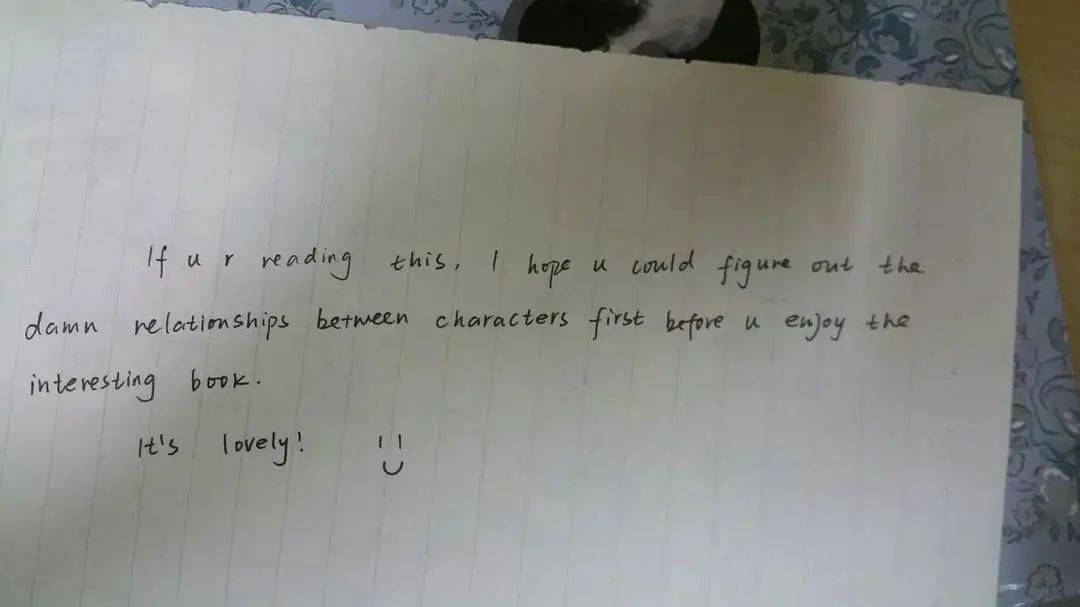 If u r reading this, I hope u could figure out the
damn relationships between characters first before u enjoy the
interesting book.
It's lovely!